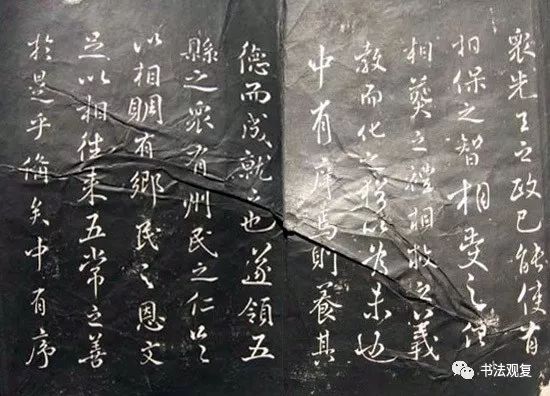 眾先王之政已能使有
相保之智相受之信
相葬之禮相救之義
教而化之猶以為未也
中有序焉則養其
德而成就之也遂領五
縣之眾有州民之仁足
以相賙有鄉民之恩又
足以相往來五常之善
於是乎備矣中有序
书法观复